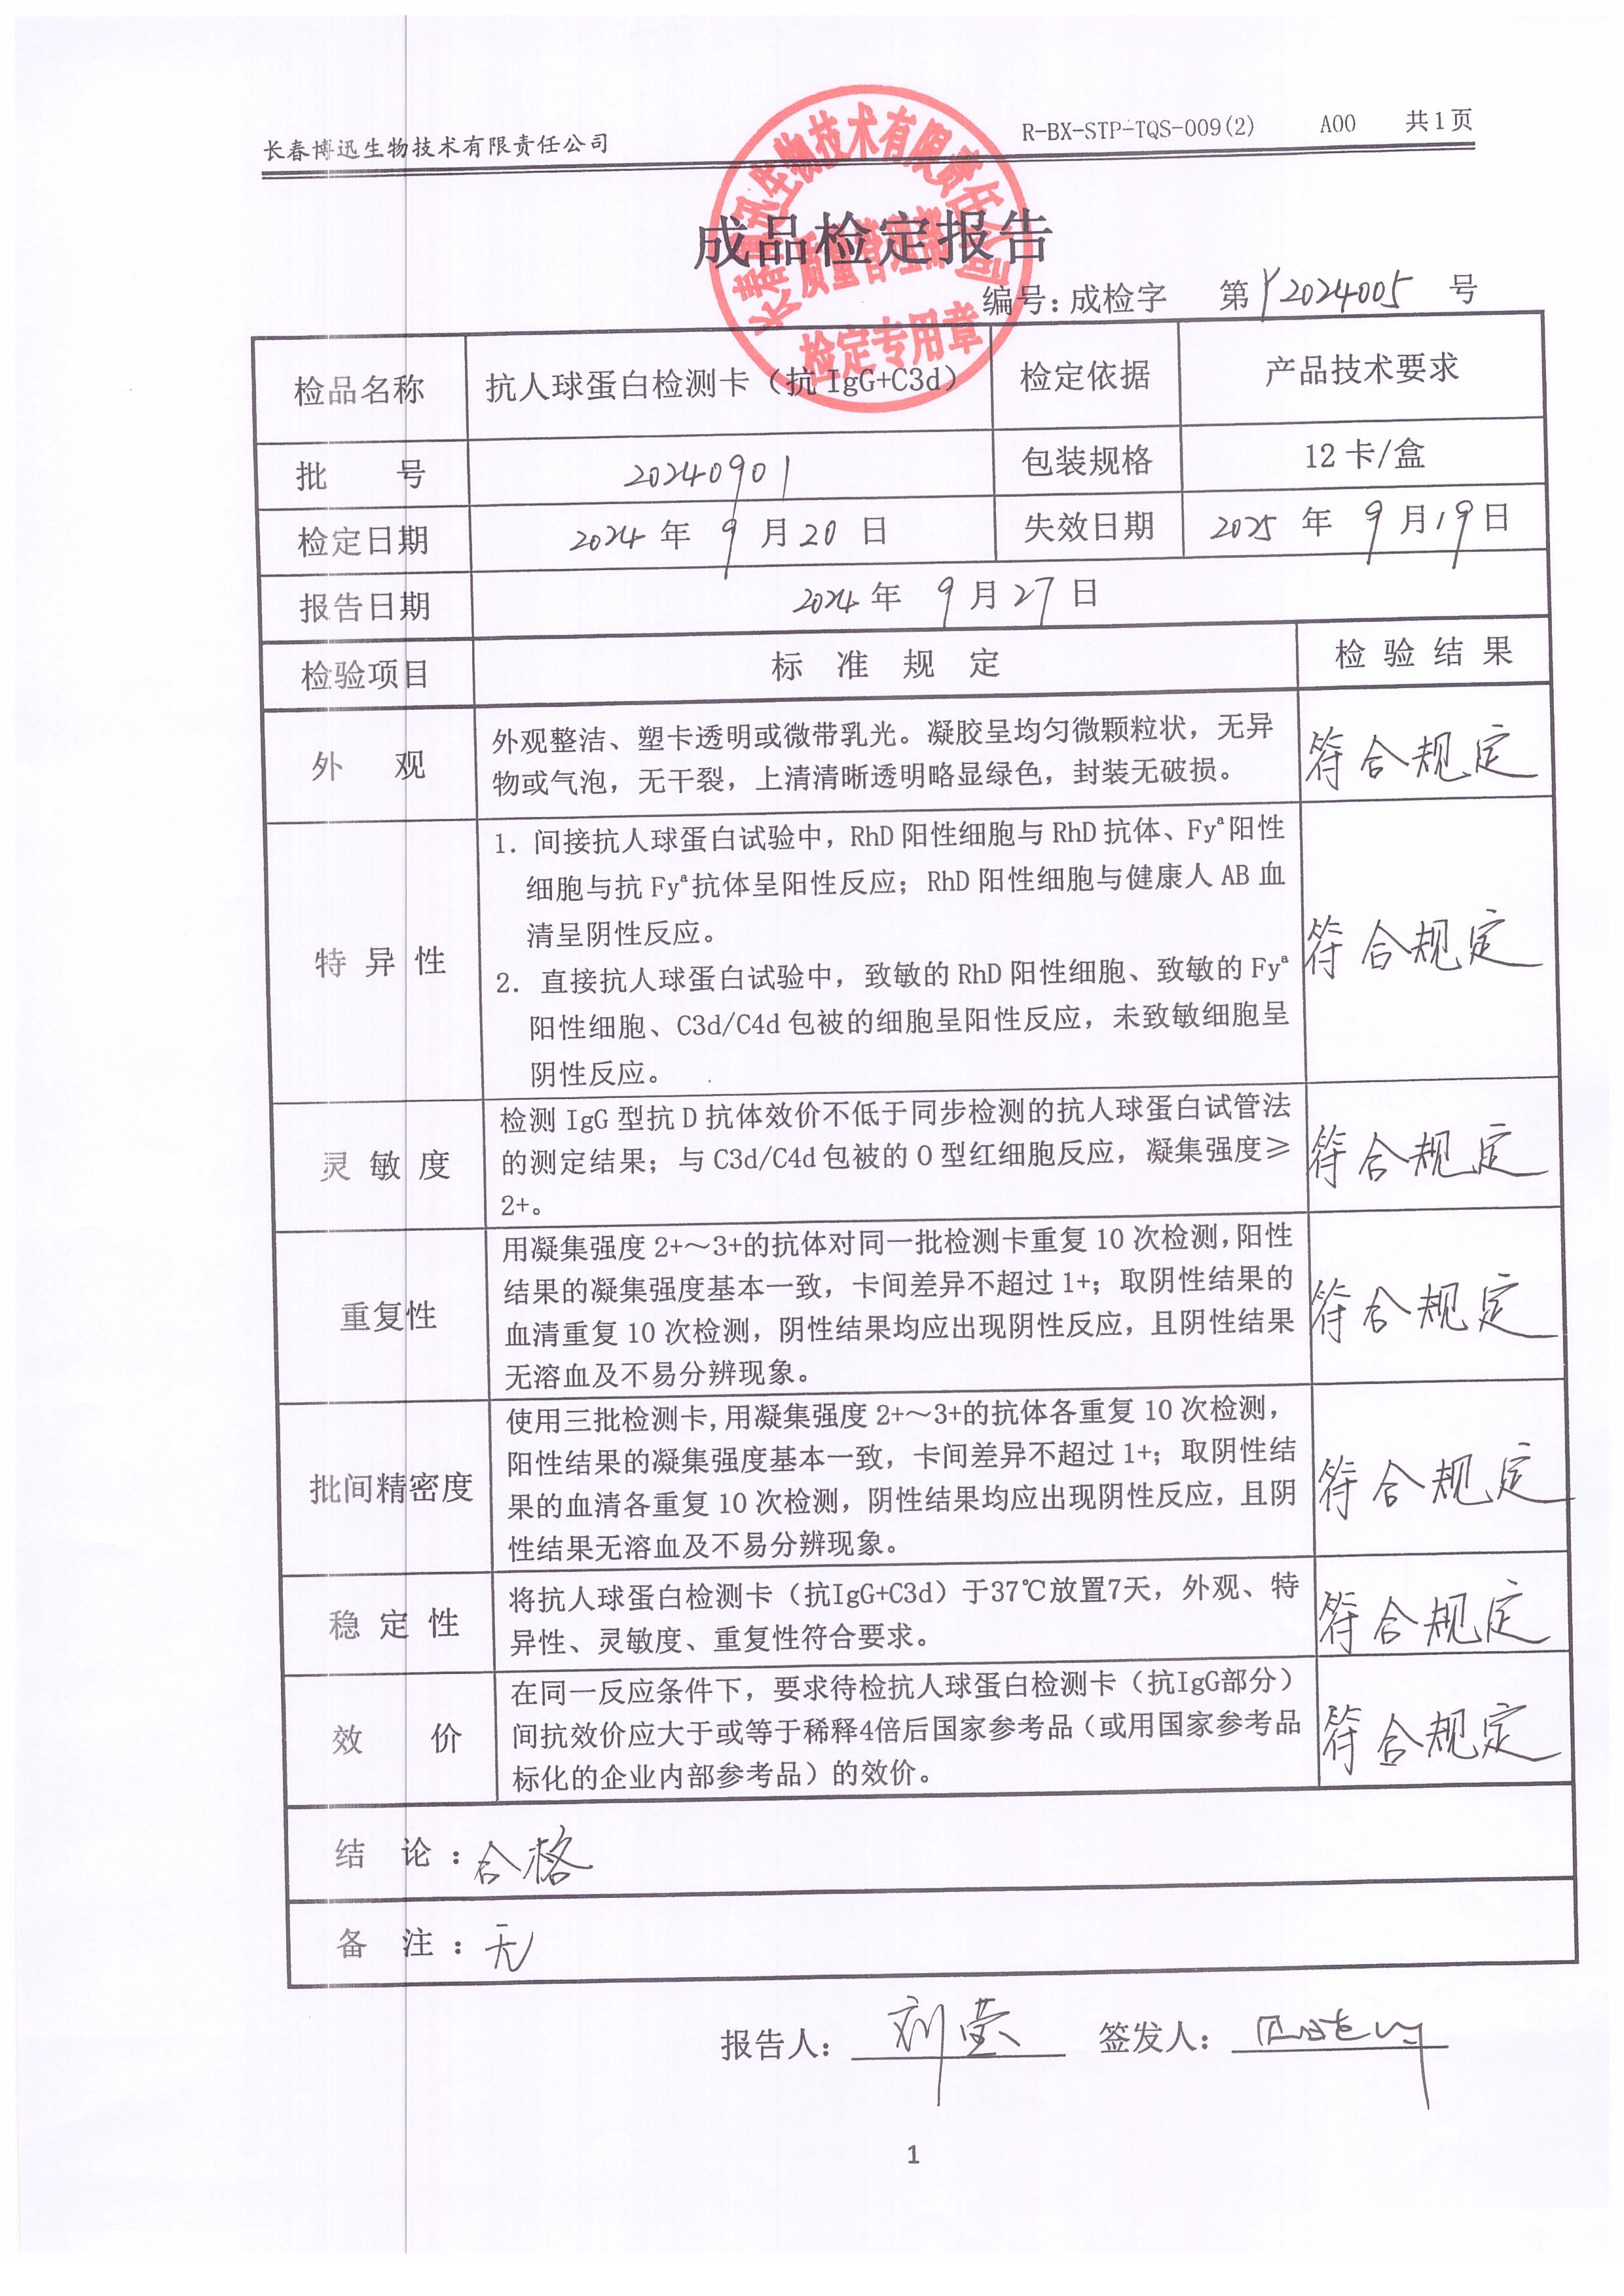 长春博迅生物技术有限责任公司 R-BX-STP-TQS-009(2) A00 共1页
长春博迅生物技术有限责任公司
质量管理部
检定专用章
成品检定报告
编号：成检字 第Y2024005号
检品名称 抗人球蛋白检测卡（抗IgG+C3d） 检定依据 产品技术要求
批 号 20240901 包装规格 12卡/盒
检定日期 2024年9月20日 失效日期 2025年9月19日
报告日期 2024年9月27日
检验项目 标 准 规 定 检 验 结 果
外 观
外观整洁、塑卡透明或微带乳光。凝胶呈均匀微颗粒状，无异
物或气泡，无干裂，上清清晰透明略显绿色，封装无破损。
符合规定
特 异 性
1. 间接抗人球蛋白试验中，RhD阳性细胞与RhD抗体、Fyª阳性
细胞与抗Fyª抗体呈阳性反应；RhD阳性细胞与健康人AB血
清呈阴性反应。
2. 直接抗人球蛋白试验中，致敏的RhD阳性细胞、致敏的Fyª
阳性细胞、C3d/C4d包被的细胞呈阳性反应，未致敏细胞呈
阴性反应。
符合规定
灵 敏 度
检测IgG型抗D抗体效价不低于同步检测的抗人球蛋白试管法
的测定结果；与C3d/C4d包被的O型红细胞反应，凝集强度≥
2+。
符合规定
重复性
用凝集强度2+～3+的抗体对同一批检测卡重复10次检测,阳性
结果的凝集强度基本一致，卡间差异不超过1+；取阴性结果的
血清重复10次检测，阴性结果均应出现阴性反应，且阴性结果
无溶血及不易分辨现象。
符合规定
批间精密度
使用三批检测卡,用凝集强度2+～3+的抗体各重复10次检测，
阳性结果的凝集强度基本一致，卡间差异不超过1+；取阴性结
果的血清各重复10次检测，阴性结果均应出现阴性反应，且阴
性结果无溶血及不易分辨现象。
符合规定
稳 定 性
将抗人球蛋白检测卡（抗IgG+C3d）于37℃放置7天，外观、特
异性、灵敏度、重复性符合要求。
符合规定
效 价
在同一反应条件下，要求待检抗人球蛋白检测卡（抗IgG部分）
间抗效价应大于或等于稀释4倍后国家参考品（或用国家参考品
标化的企业内部参考品）的效价。
符合规定
结 论：合格
备 注：无
报告人：刘莹 签发人：
1